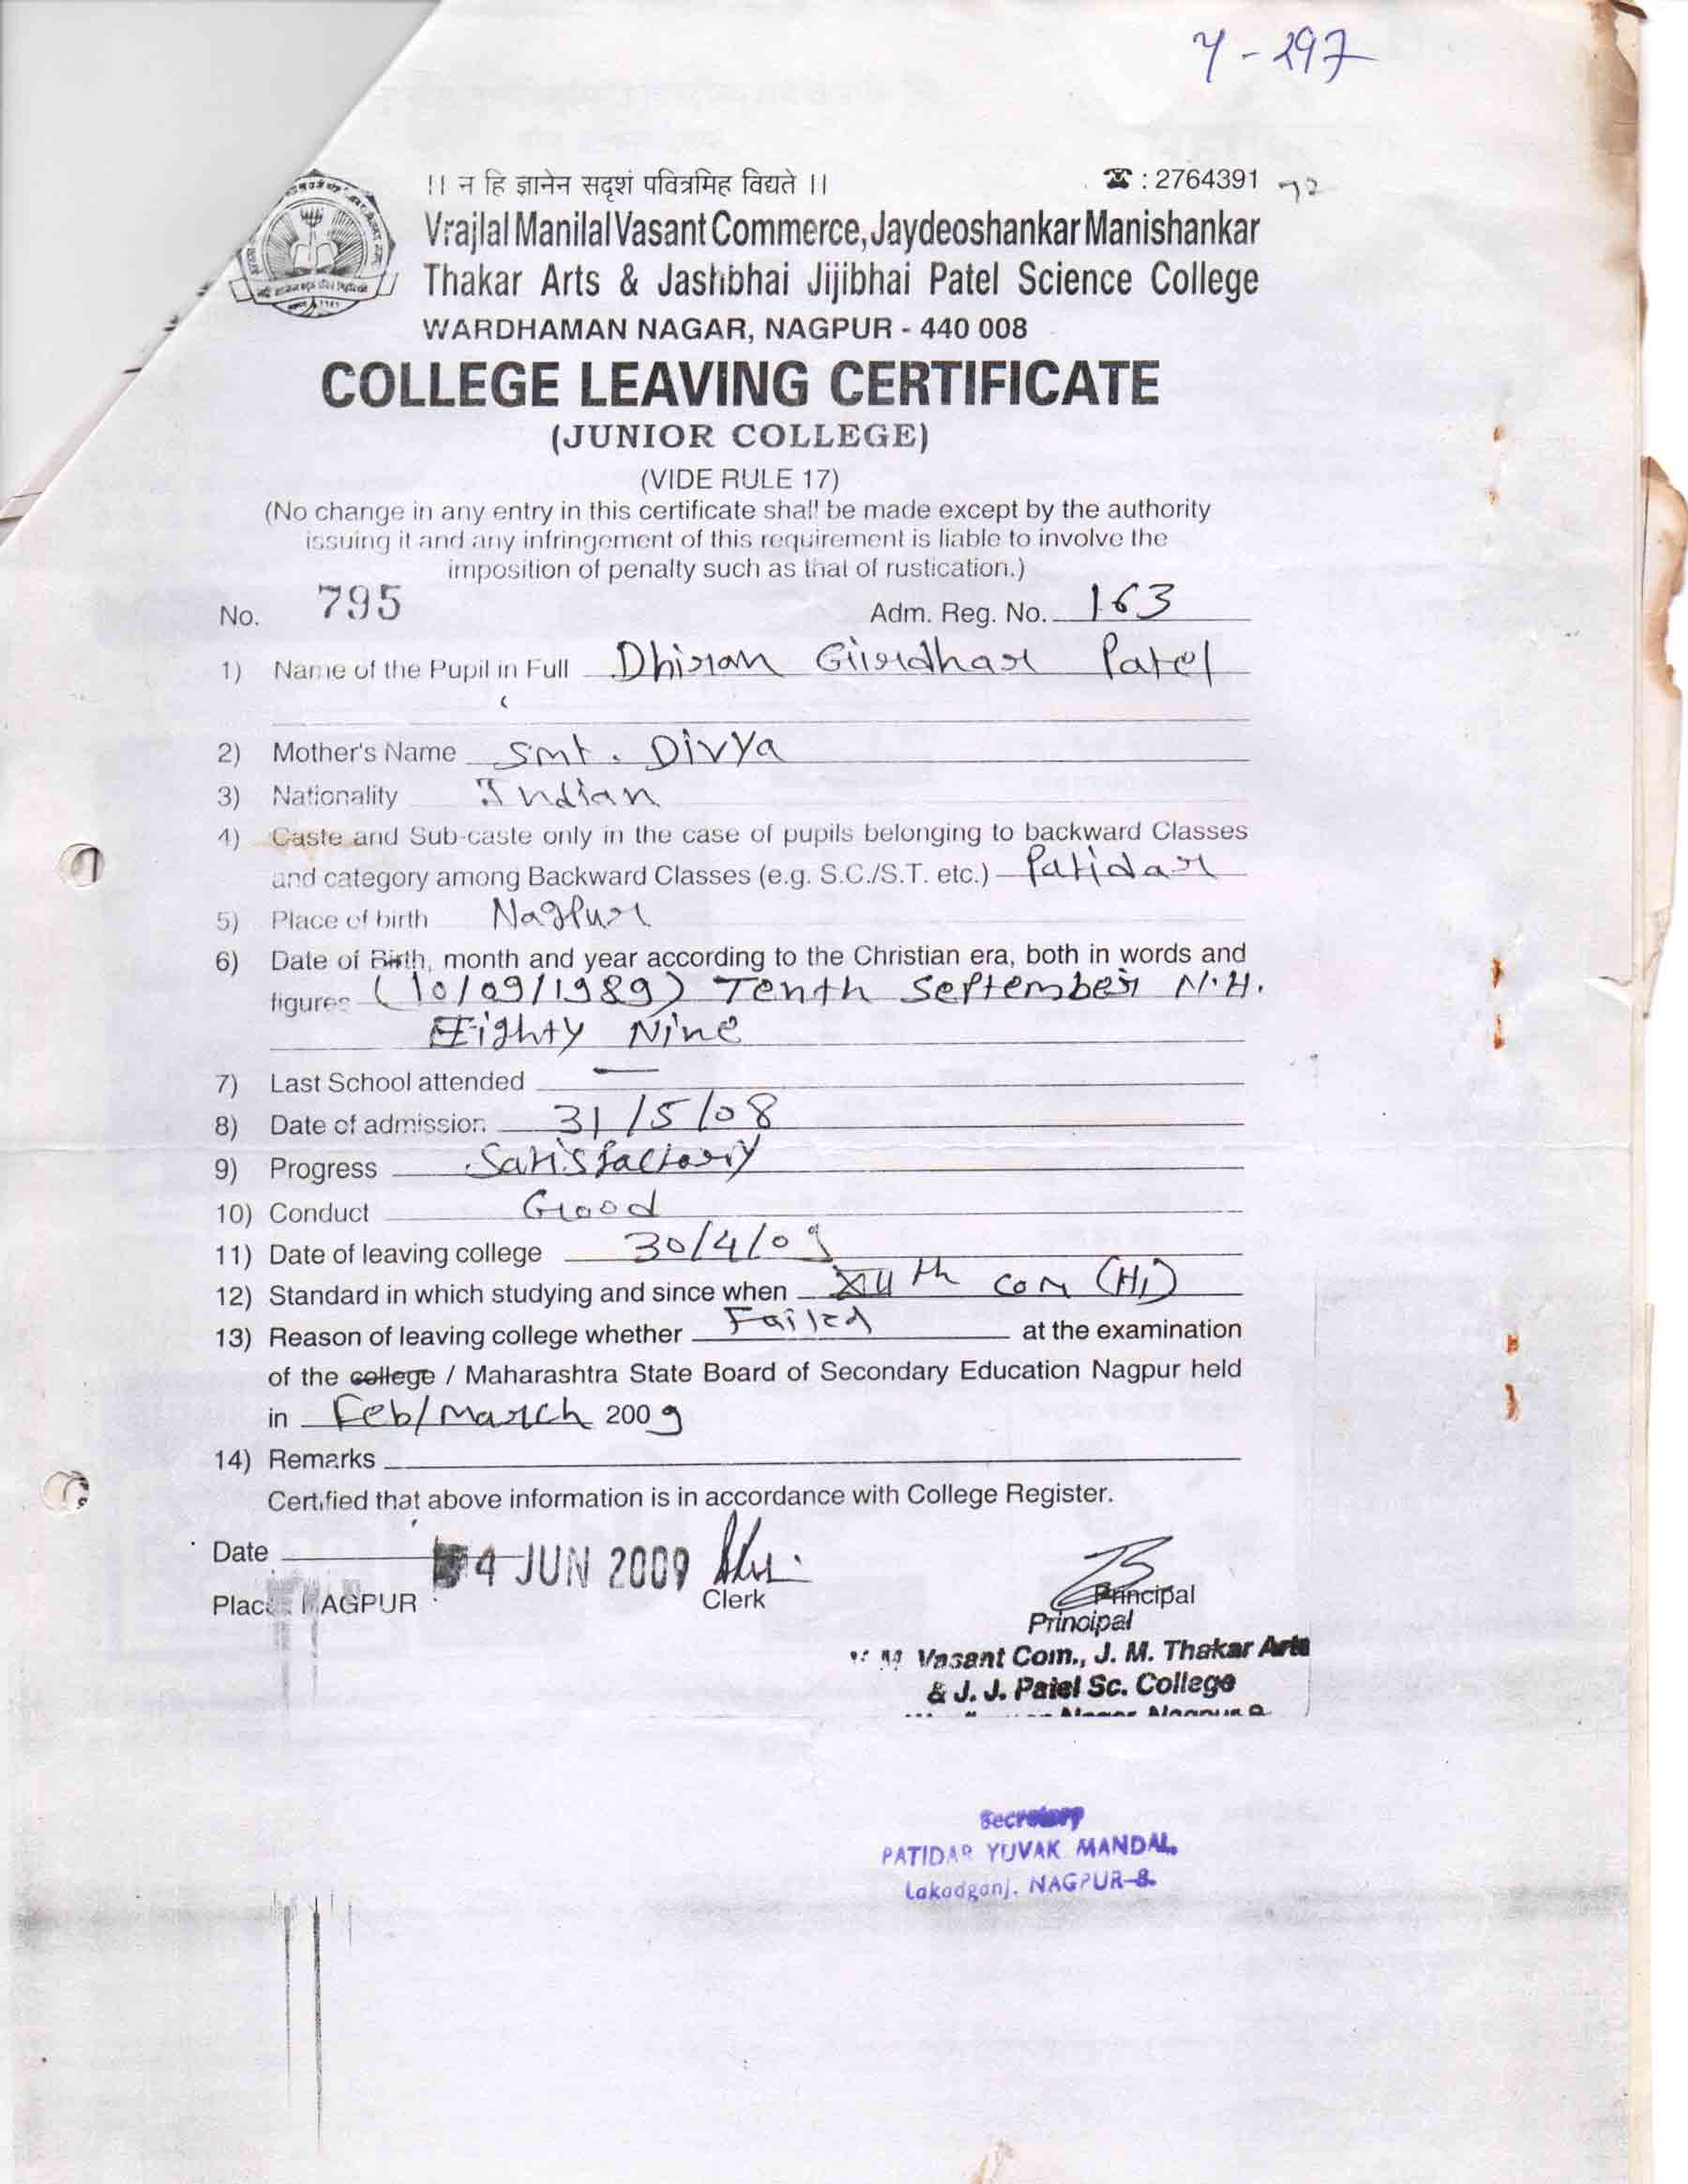 ४-२९७
।। न हि ज्ञानेन सदृशं पवित्रमिह विद्यते ।।
☎ : 2764391
Vrajlal Manilal Vasant Commerce, Jaydeoshankar Manishankar
Thakar Arts & Jashbhai Jijibhai Patel Science College
WARDHAMAN NAGAR, NAGPUR - 440 008
COLLEGE LEAVING CERTIFICATE
(JUNIOR COLLEGE)
(VIDE RULE 17)
(No change in any entry in this certificate shall be made except by the authority
issuing it and any infringement of this requirement is liable to involve the
imposition of penalty such as that of rustication.)
No. 795 Adm. Reg. No. 163
1) Name of the Pupil in Full Dhiran Girdhar Patel
2) Mother's Name Smt. Divya
3) Nationality Indian
4) Caste and Sub-caste only in the case of pupils belonging to backward Classes
and category among Backward Classes (e.g. S.C./S.T. etc.) Patidar
5) Place of birth Nagpur
6) Date of Birth, month and year according to the Christian era, both in words and
figures (10/09/1989) Tenth September N.H.
Eighty Nine
7) Last School attended —
8) Date of admission 31/5/08
9) Progress Satisfactory
10) Conduct Good
11) Date of leaving college 30/4/09
12) Standard in which studying and since when XIIth Com (H)
13) Reason of leaving college whether Failed at the examination
of the college / Maharashtra State Board of Secondary Education Nagpur held
in Feb/March 2009
14) Remarks
Certified that above information is in accordance with College Register.
Date 4 JUN 2009
Place : NAGPUR Clerk Principal
Principal
V. M. Vasant Com., J. M. Thakar Arts
& J. J. Patel Sc. College
Nagar, Nagpur-8
Secretary
PATIDAR YUVAK MANDAL
Lakadganj, NAGPUR-8.